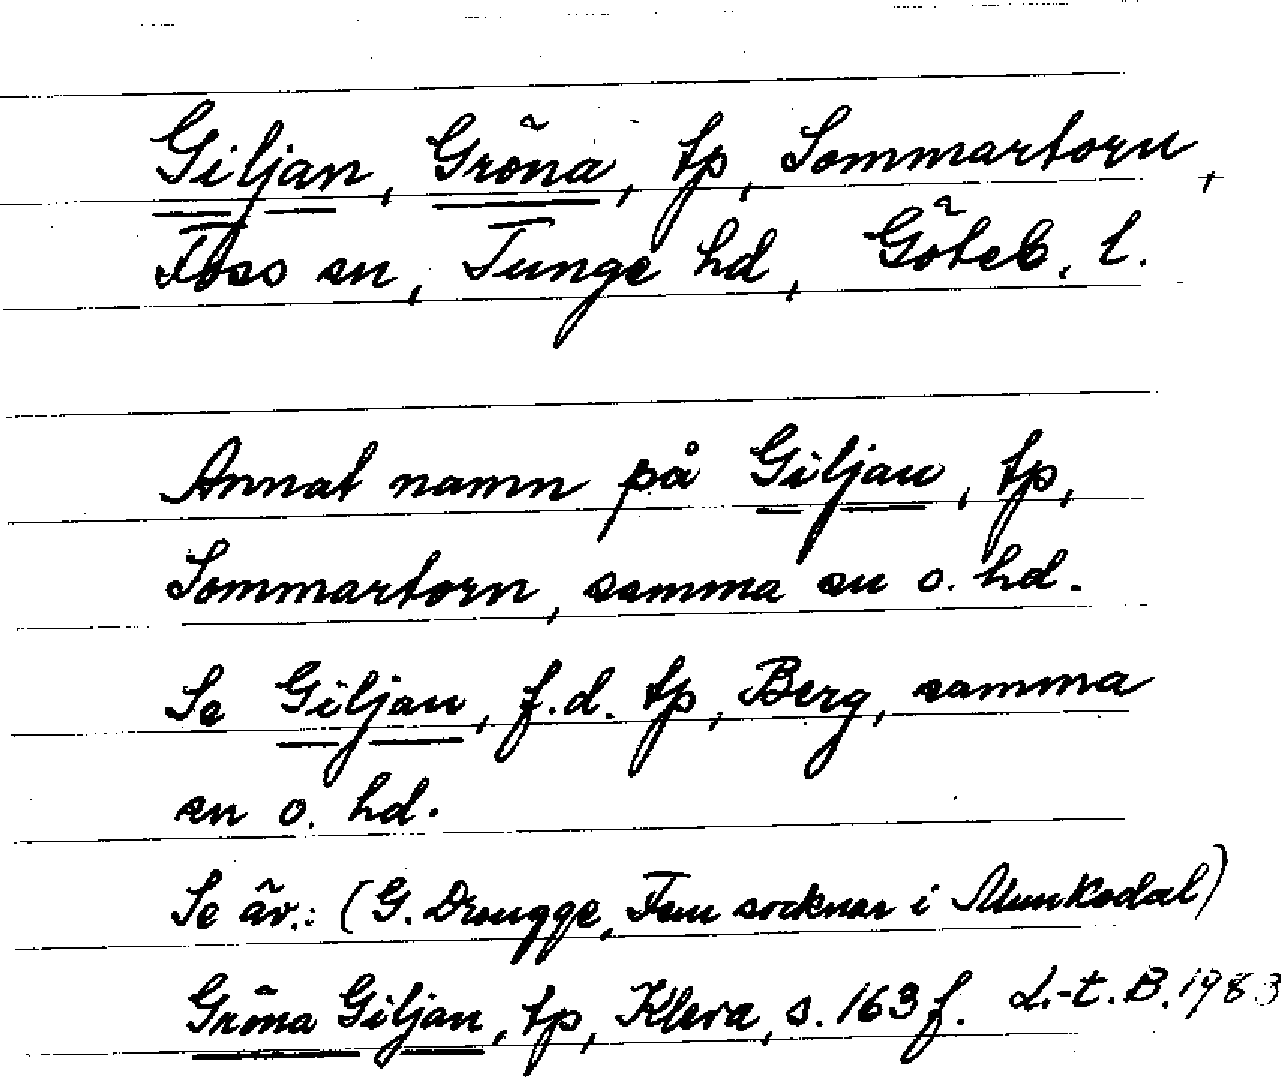 Giljan, Gröna, tp, Sommartorn,
Foss sn, Tunge hd, Göteb. l.
Annat namn på Giljan, tp,
Sommartorn, samma sn o. hd.
Se Giljan, f.d. tp, Berg, samma
sn o. hd.
Se äv.: (G. Drougge, Fem socknar i Munkedal)
Gröna Giljan, tp, Kleva, s. 163 f. L.-t. B. 1983